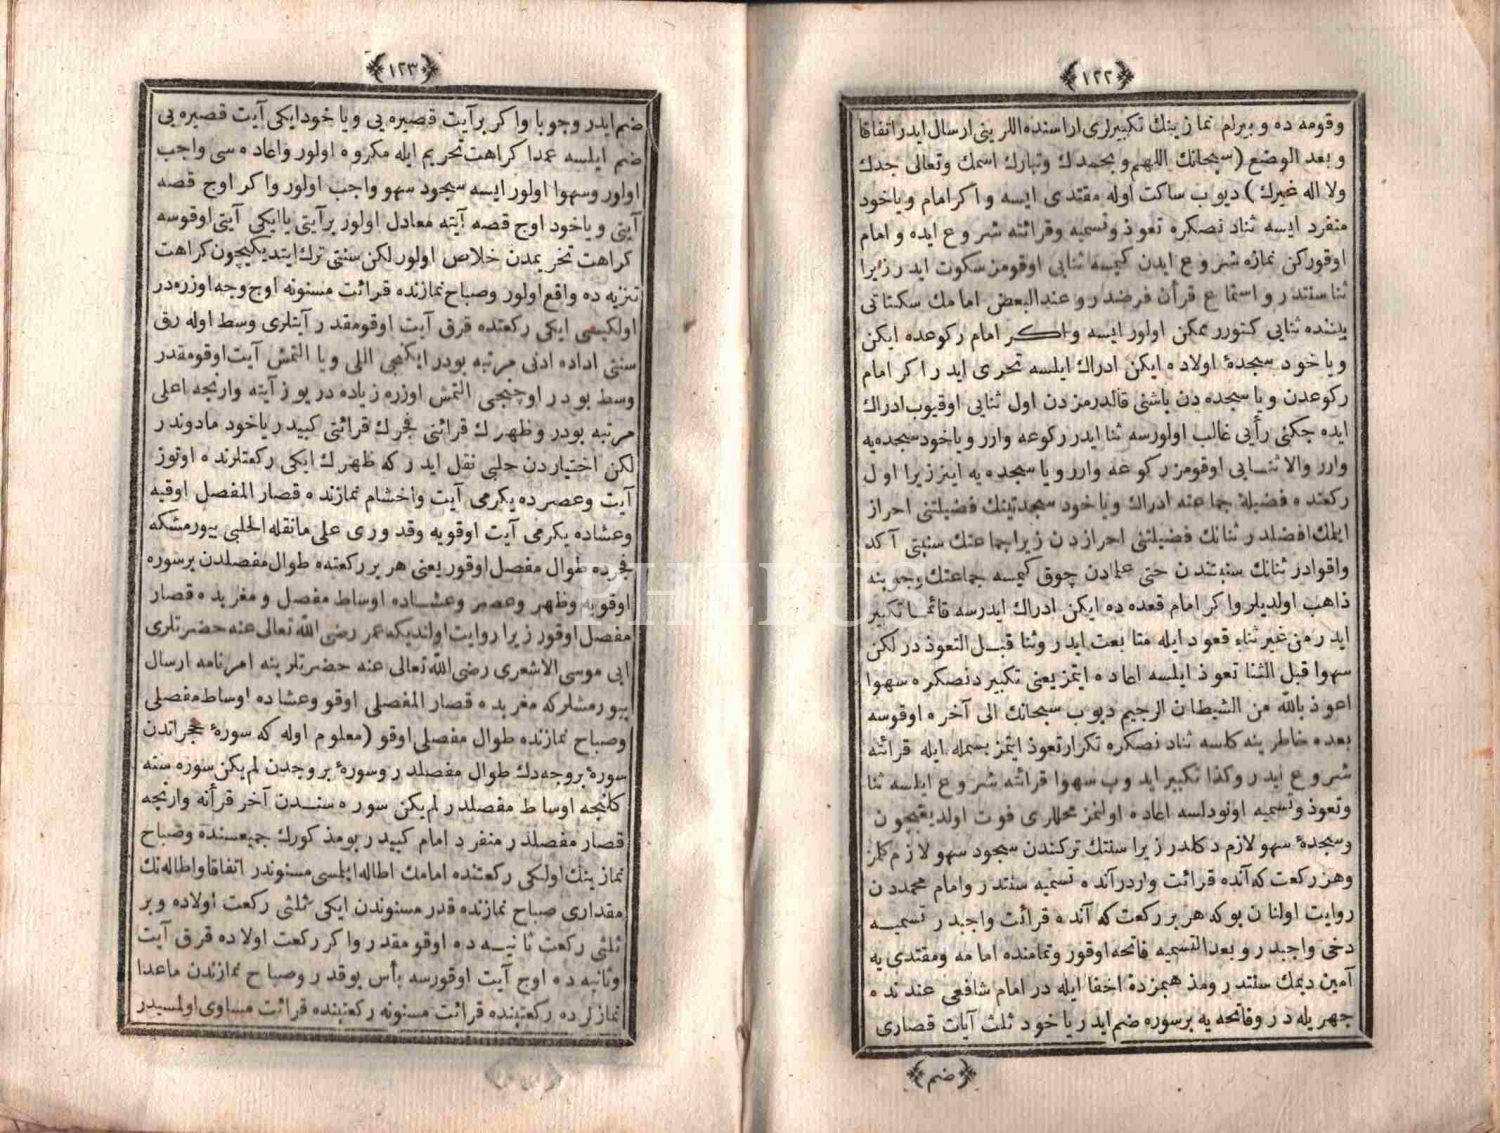 ١٢٢
وقومه ده و بيرام نمازينك تكبيرلرى اراسنده اللرينى ارسال ايدر اتفاقا
و بعد الوضع (سبحانك اللهم و بحمدك وتبارك اسمك وتعالى جدك
ولا اله غيرك) ديوب ساكت اوله مقتدى ايسه و اكر امام وياخود
منفرد ايسه ثنادنصكره تعوذ وتسميه وقرائته شروع ايده و امام
اوقوركن نمازه شروع ايدن كيمسه ثنايى اوقومز سكوت ايدر زيرا
ثنا سنتدر و استماع قرآن فرضدر و عند البعض امامك سكتاتى
بيننده ثنايى كتورر ممكن اولور ايسه و اكر امام ركوعده ايكن
وياخود سجدۀ اولاده ايكن ادراك ايلسه تحرى ايدر اكر امام
ركوعدن ويا سجده دن باشنى قالدرمزدن اول ثنايى اوقيوب ادراك
ايده جكنى رأيى غالب اولورسه ثنا ايدر ركوعه وارر وياخود سجده يه
وارر والا ثنايى اوقومز ركوعه وارر ويا سجده يه ايتر زيرا اول
ركعتده فضيلۀ جماعته ادراك وياخود سجدتينك فضيلتنى احراز
ايلمك افضلدر ثنانك فضيلتنى احرازدن زيرا جماعتك سنيتى آكد
واقوادر ثنانك سنيتندن حتى علمادن چوق كيمسه جماعتك وجوبنه
ذاهب اولديلر و اكر امام قعده ده ايكن ادراك ايدرسه قائما تكبير
ايدر من غير ثناء قعود ايله متابعت ايدر وثنا قبل التعوذدر لكن
سهوا قبل الثنا تعوذ ايلسه اعاده ايتمز يعنى تكبيردنصكره سهوا
اعوذ بالله من الشيطان الرجيم ديوب سبحانك الى آخره اوقوسه
بعده خاطرينه كلسه ثنادنصكره تكرار تعوذ ايتمز بسمله ايله قرائته
شروع ايدر وكذا تكبير ايدوب سهوا قرائته شروع ايلسه ثنا
وتعوذ وتسميه اونودلسه اعاده اولنمز محللرى فوت اولديغيچون
وسجدۀ سهو لازم دكلدر زيرا سنتك تركندن سجود سهو لازم كلمز
وهر ركعت كه آنده قرائت واردر آنده تسميه سنتدر وامام محمددن
روايت اولنان بو كه هر بر ركعت كه آنده قرائت واجبدر تسميه
دخى واجبدر و بعد التسميه فاتحه اوقور وتمامنده امامه ومقتدى يه
آمين ديمك سنتدر ومذ همزۀ اخفا ايله در امام شافعى عندنده
جهريله در وفاتحه يه بر سوره ضم ايدر ياخود ثلث آيات قصارى
ضم
١٢٣
ضم ايدر وجوبا واكر بر آيت قصيره يى وياخود ايكى آيت قصيره يى
ضم ايلسه عمدا كراهت تحريم ايله مكروه اولور واعاده سى واجب
اولور وسهوا اولور ايسه سجود سهو واجب اولور واكر اوج قصه
آيتى وياخود اوج قصه آيته معادل اولور بر آيتى يا ايكى آيتى اوقوسه
كراهت تحريمدن خلاص اولور لكن سنتى ترك ايتديكيچون كراهت
تنزيه ده واقع اولور وصباح نمازنده قرائت مسنونه اوج وجه اوزره در
اولكيسى ايكى ركعتده قرق آيت اوقومقدر آيتلرى وسط اوله رق
سنتى اداده ادنى مرتبه بودر ايكنجى اللى ويا التمش آيت اوقومقدر
وسط بودر اوچنجى التمش اوزره زياده در يوز آيته وارنجه اعلى
مرتبه بودر وظهرك قرائتى فجرك قرائتى كبيدر ياخود مادوندر
لكن اختياردن جلبى نقل ايدر كه ظهرك ايكى ركعتلرنده اوتوز
آيت وعصرده يكرمى آيت واخشام نمازنده قصار المفصل اوقيه
وعشاده يكرمى آيت اوقويه وقدورى على مانقله الحلبى بيورمشكه
فجرده طوال مفصل اوقور يعنى هر بر ركعتده طوال مفصلدن بر سوره
اوقويه وظهر وعصر وعشاده اوساط مفصل و مغربده قصار
مفصل اوقور زيرا روايت اولنديكه عمر رضى الله تعالى عنه حضرتلرى
ابى موسى الاشعرى رضى الله تعالى عنه حضرتلرينه امرنامه ارسال
بيورمشلر كه مغربده قصار المفصلى اوقو وعشاده اوساط مفصلى
وصباح نمازنده طوال مفصلى اوقو (معلوم اوله كه سورۀ حجراتدن
سورۀ بروجه دك طوال مفصلدر وسورۀ بروجدن لم يكن سوره سنه
كلنجه اوساط مفصلدر لم يكن سوره سندن آخر قرآنه وارنجه
قصار مفصلدر منفرد امام كبيدر بو مذكورك جميعسنده وصباح
نمازينك اولكى ركعتنده امامك اطاله ايلمسى مسنوندر اتفاقا واطاله نك
مقدارى صباح نمازنده قدر مسنوندن ايكى ثلثى ركعت اولاده وبر
ثلثى ركعت ثانيه ده اوقومقدر واكر ركعت اولاده قرق آيت
وثانيه ده اوج آيت اوقورسه بأس يوقدر وصباح نمازندن ماعدا
نمازلرده ركعتينده قرائت مسنونه ركعتينده قرائت مساوى اولمسيدر
PHEBUS